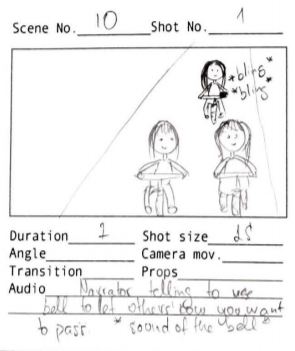 Scene No. 10 Shot No. 1
*bling*
*bling
Duration 2 Shot size LS
Angle Camera mov.
Transition Props
Audio Narrator telling to use
bell to let others know you want
to pass * sound of the bell*